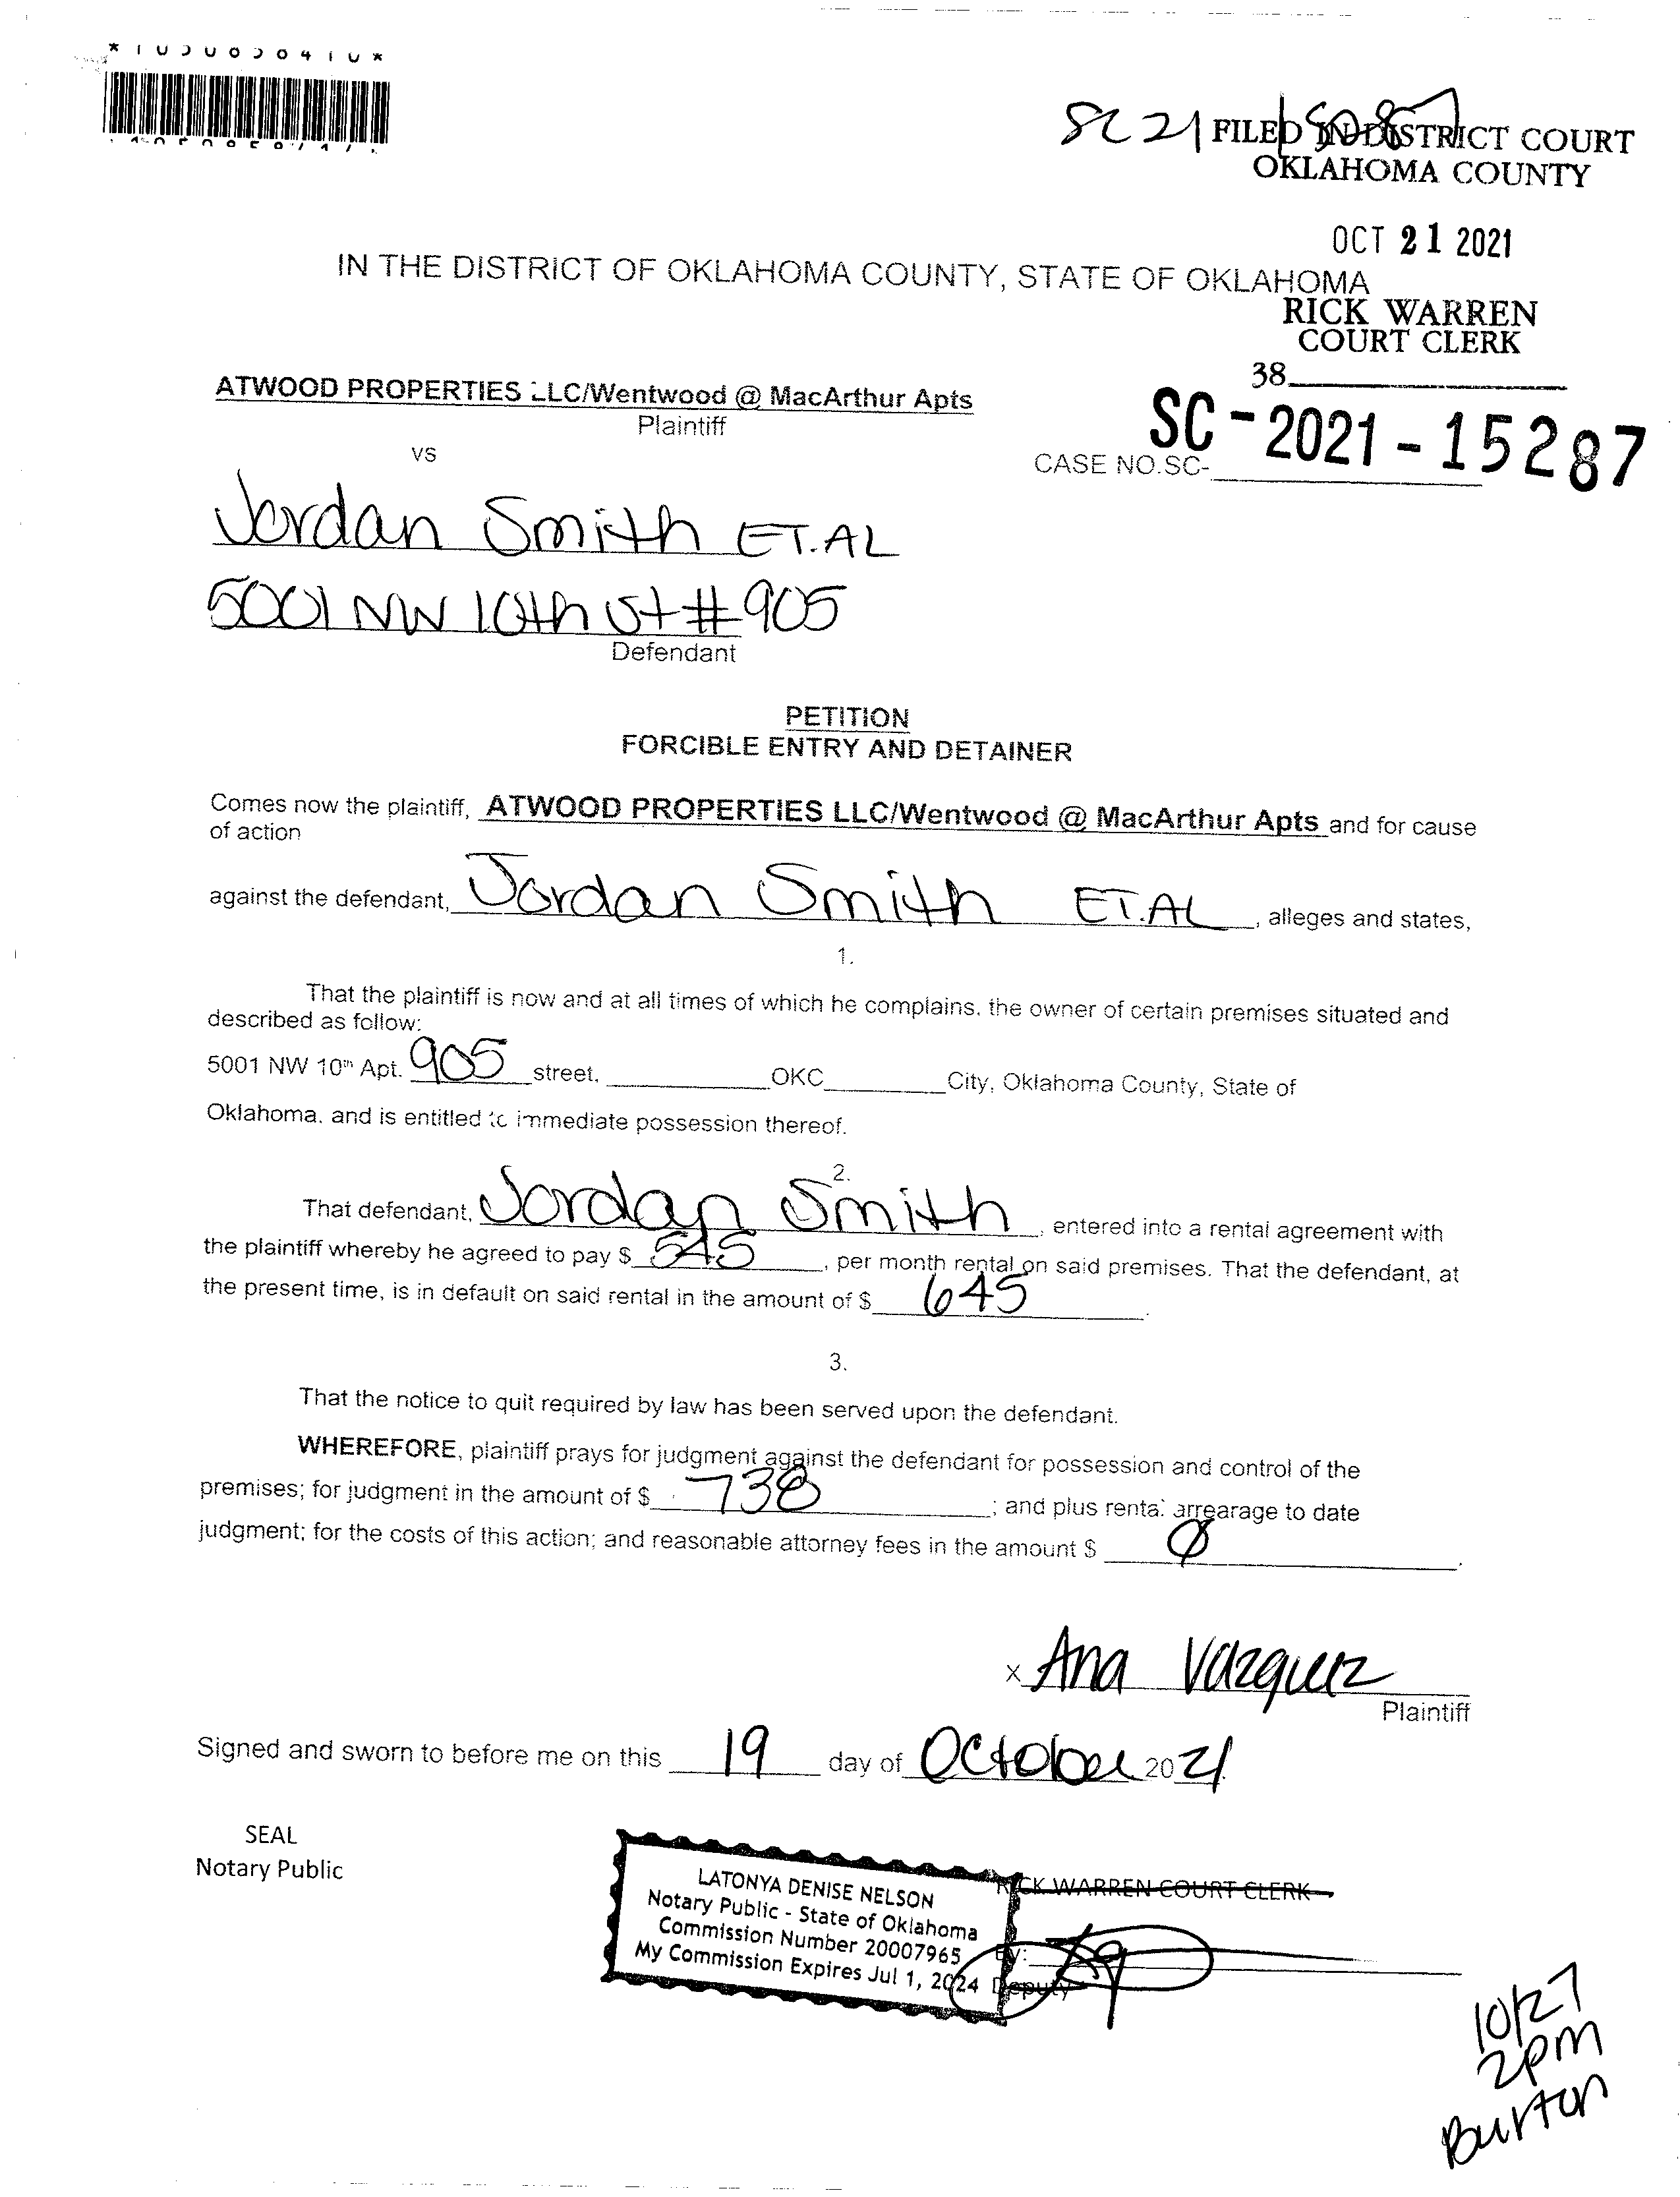 SC21
FILED IN DISTRICT COURT
OKLAHOMA COUNTY
OCT 21 2021
IN THE DISTRICT OF OKLAHOMA COUNTY, STATE OF OKLAHOMA
RICK WARREN
COURT CLERK
38
ATWOOD PROPERTIES LLC/Wentwood @ MacArthur Apts
Plaintiff
vs
SC-2021-15287
CASE NO.SC-
Jordan Smith ET.AL
5001 NW 10th St # 905
Defendant
PETITION
FORCIBLE ENTRY AND DETAINER
Comes now the plaintiff, ATWOOD PROPERTIES LLC/Wentwood @ MacArthur Apts and for cause
of action
against the defendant, Jordan Smith ET.AL, alleges and states,
1.
That the plaintiff is now and at all times of which he complains, the owner of certain premises situated and
described as follow:
5001 NW 10th Apt. 905 street, OKC City, Oklahoma County, State of
Oklahoma, and is entitled to immediate possession thereof.
2.
That defendant, Jordan Smith, entered into a rental agreement with
the plaintiff whereby he agreed to pay $ 545, per month rental on said premises. That the defendant, at
the present time, is in default on said rental in the amount of $ 645.
3.
That the notice to quit required by law has been served upon the defendant.
WHEREFORE, plaintiff prays for judgment against the defendant for possession and control of the
premises; for judgment in the amount of $ 738; and plus rental arrearage to date
judgment; for the costs of this action; and reasonable attorney fees in the amount $ Ø.
x Ana Vazquez
Plaintiff
Signed and sworn to before me on this 19 day of October 2021.
SEAL
Notary Public
LATONYA DENISE NELSON
Notary Public - State of Oklahoma
Commission Number 20007965
My Commission Expires Jul 1, 2024
RICK WARREN COURT CLERK
By:
Deputy
10/27
2pm
Burton